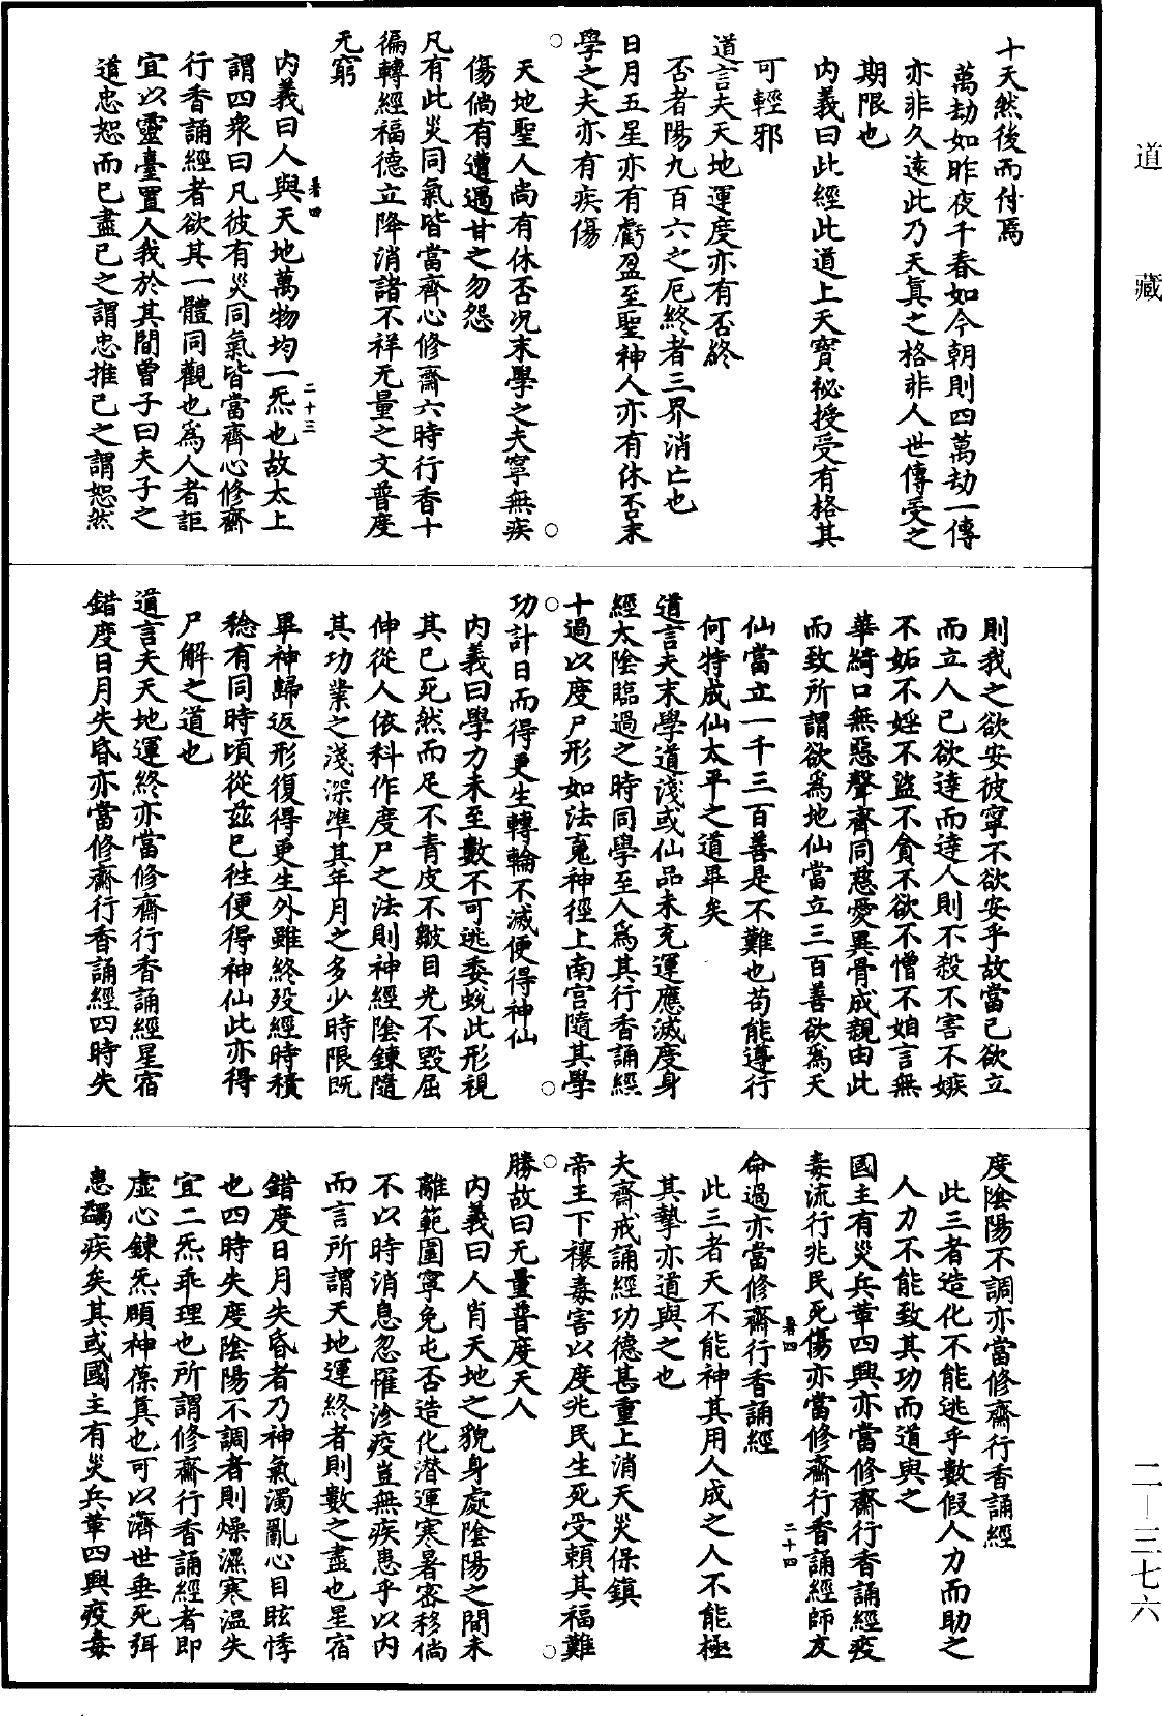 道藏
二—三七六
十天然後而付焉
萬劫如昨夜千春如今朝則四萬劫一傳
亦非久遠此乃天真之格非人世傳受之
期限也
內義曰此經此道上天寶祕授受有格其
可輕邪
道言夫天地運度亦有否終
否者陽九百六之厄終者三界消亡也
日月五星亦有虧盈至聖神人亦有休否末
學之夫亦有疾傷
天地聖人尚有休否況末學之夫寧無疾
傷倘有遭遇甘之勿怨
凡有此災同氣皆當齊心修齋六時行香十
徧轉經福德立降消諸不祥无量之文普度
无窮
暑四
二十三
內義曰人與天地萬物均一炁也故太上
謂四衆曰凡彼有災同氣皆當齊心修齋
行香誦經者欲其一體同觀也爲人者詎
宜以靈臺置人我於其間曾子曰夫子之
道忠恕而已盡己之謂忠推己之謂恕然
則我之欲安彼寧不欲安乎故當己欲立
而立人己欲達而達人則不殺不害不嫉
不妬不婬不盜不貪不欲不憎不㛂言無
華綺口無惡聲齊同慈愛異骨成親由此
而致所謂欲爲地仙當立三百善欲爲天
仙當立一千三百善是不難也苟能遵行
何特成仙太平之道畢矣
道言夫末學道淺或仙品未充運應滅度身
經太陰臨過之時同學至人爲其行香誦經
十過以度尸形如法䰟神徑上南宮隨其學
功計日而得更生轉輪不滅便得神仙
內義曰學力未至數不可逃委蛻此形視
其已死然而足不青皮不皺目光不毀屈
伸從人依科作度尸之法則神經陰鍊隨
其功業之淺深準其年月之多少時限既
畢神歸返形復得更生外雖終歿經時積
稔有同時頃從茲已徃便得神仙此亦得
尸解之道也
道言夫天地運終亦當修齋行香誦經星宿
錯度日月失昏亦當修齋行香誦經四時失
度陰陽不調亦當修齋行香誦經
此三者造化不能逃乎數假人力而助之
人力不能致其功而道與之
國主有災兵革四興亦當修齋行香誦經疫
毒流行兆民死傷亦當修齋行香誦經師友
暑四
二十四
命過亦當修齋行香誦經
此三者天不能神其用人成之人不能極
其摯亦道與之也
夫齋戒誦經功德甚重上消天災保鎮
帝王下禳毒害以度兆民生死受賴其福難
勝故曰无量普度天人
內義曰人肖天地之貌身處陰陽之間未
離範圍寧免屯否造化潛運寒暑密移倘
不以時消息忽罹沴疫豈無疾患乎以內
而言所謂天地運終者則數之盡也星宿
錯度日月失昏者乃神氣濁亂心目眩悸
也四時失度陰陽不調者則燥濕寒溫失
宜二炁乖理也所謂修齋行香誦經者即
虛心鍊炁頤神葆真也可以濟世垂死弭
患蠲疾矣其或國主有災兵革四興疫毒